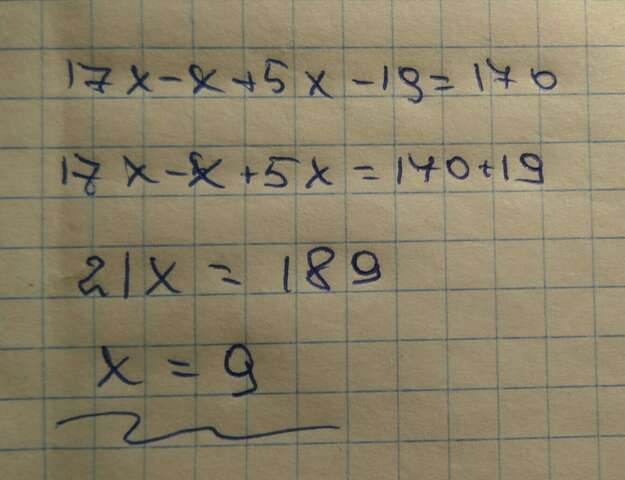 17x-x+5x-19=170
17x-x+5x=170+19
21x=189
x=9